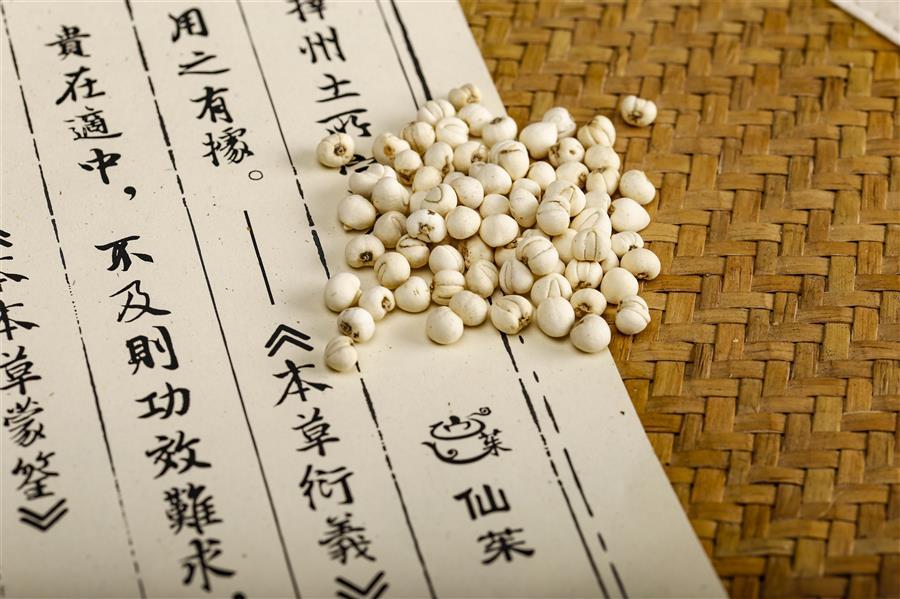 仙茱
州土所
用之有據。——《本草衍義》
貴在適中，不及則功效難求，
《本草蒙筌》